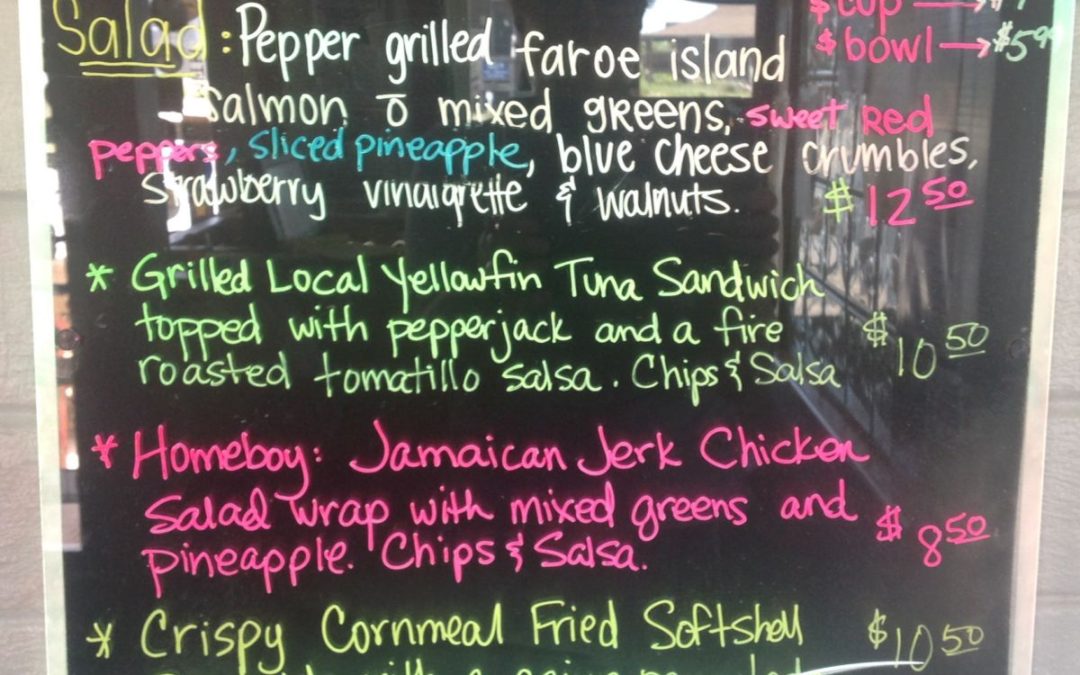 $ cup →
$ bowl → $5.99
Salad: Pepper grilled faroe island
salmon ō mixed greens, sweet Red
peppers, sliced pineapple, blue cheese crumbles,
strawberry vinaigrette & walnuts. $12.50
* Grilled Local Yellowfin Tuna Sandwich
topped with pepperjack and a fire
roasted tomatillo salsa. Chips & Salsa $10.50
* Homeboy: Jamaican Jerk Chicken
Salad wrap with mixed greens and
pineapple. Chips & Salsa. $8.50
* Crispy Cornmeal Fried Softshell $10.50